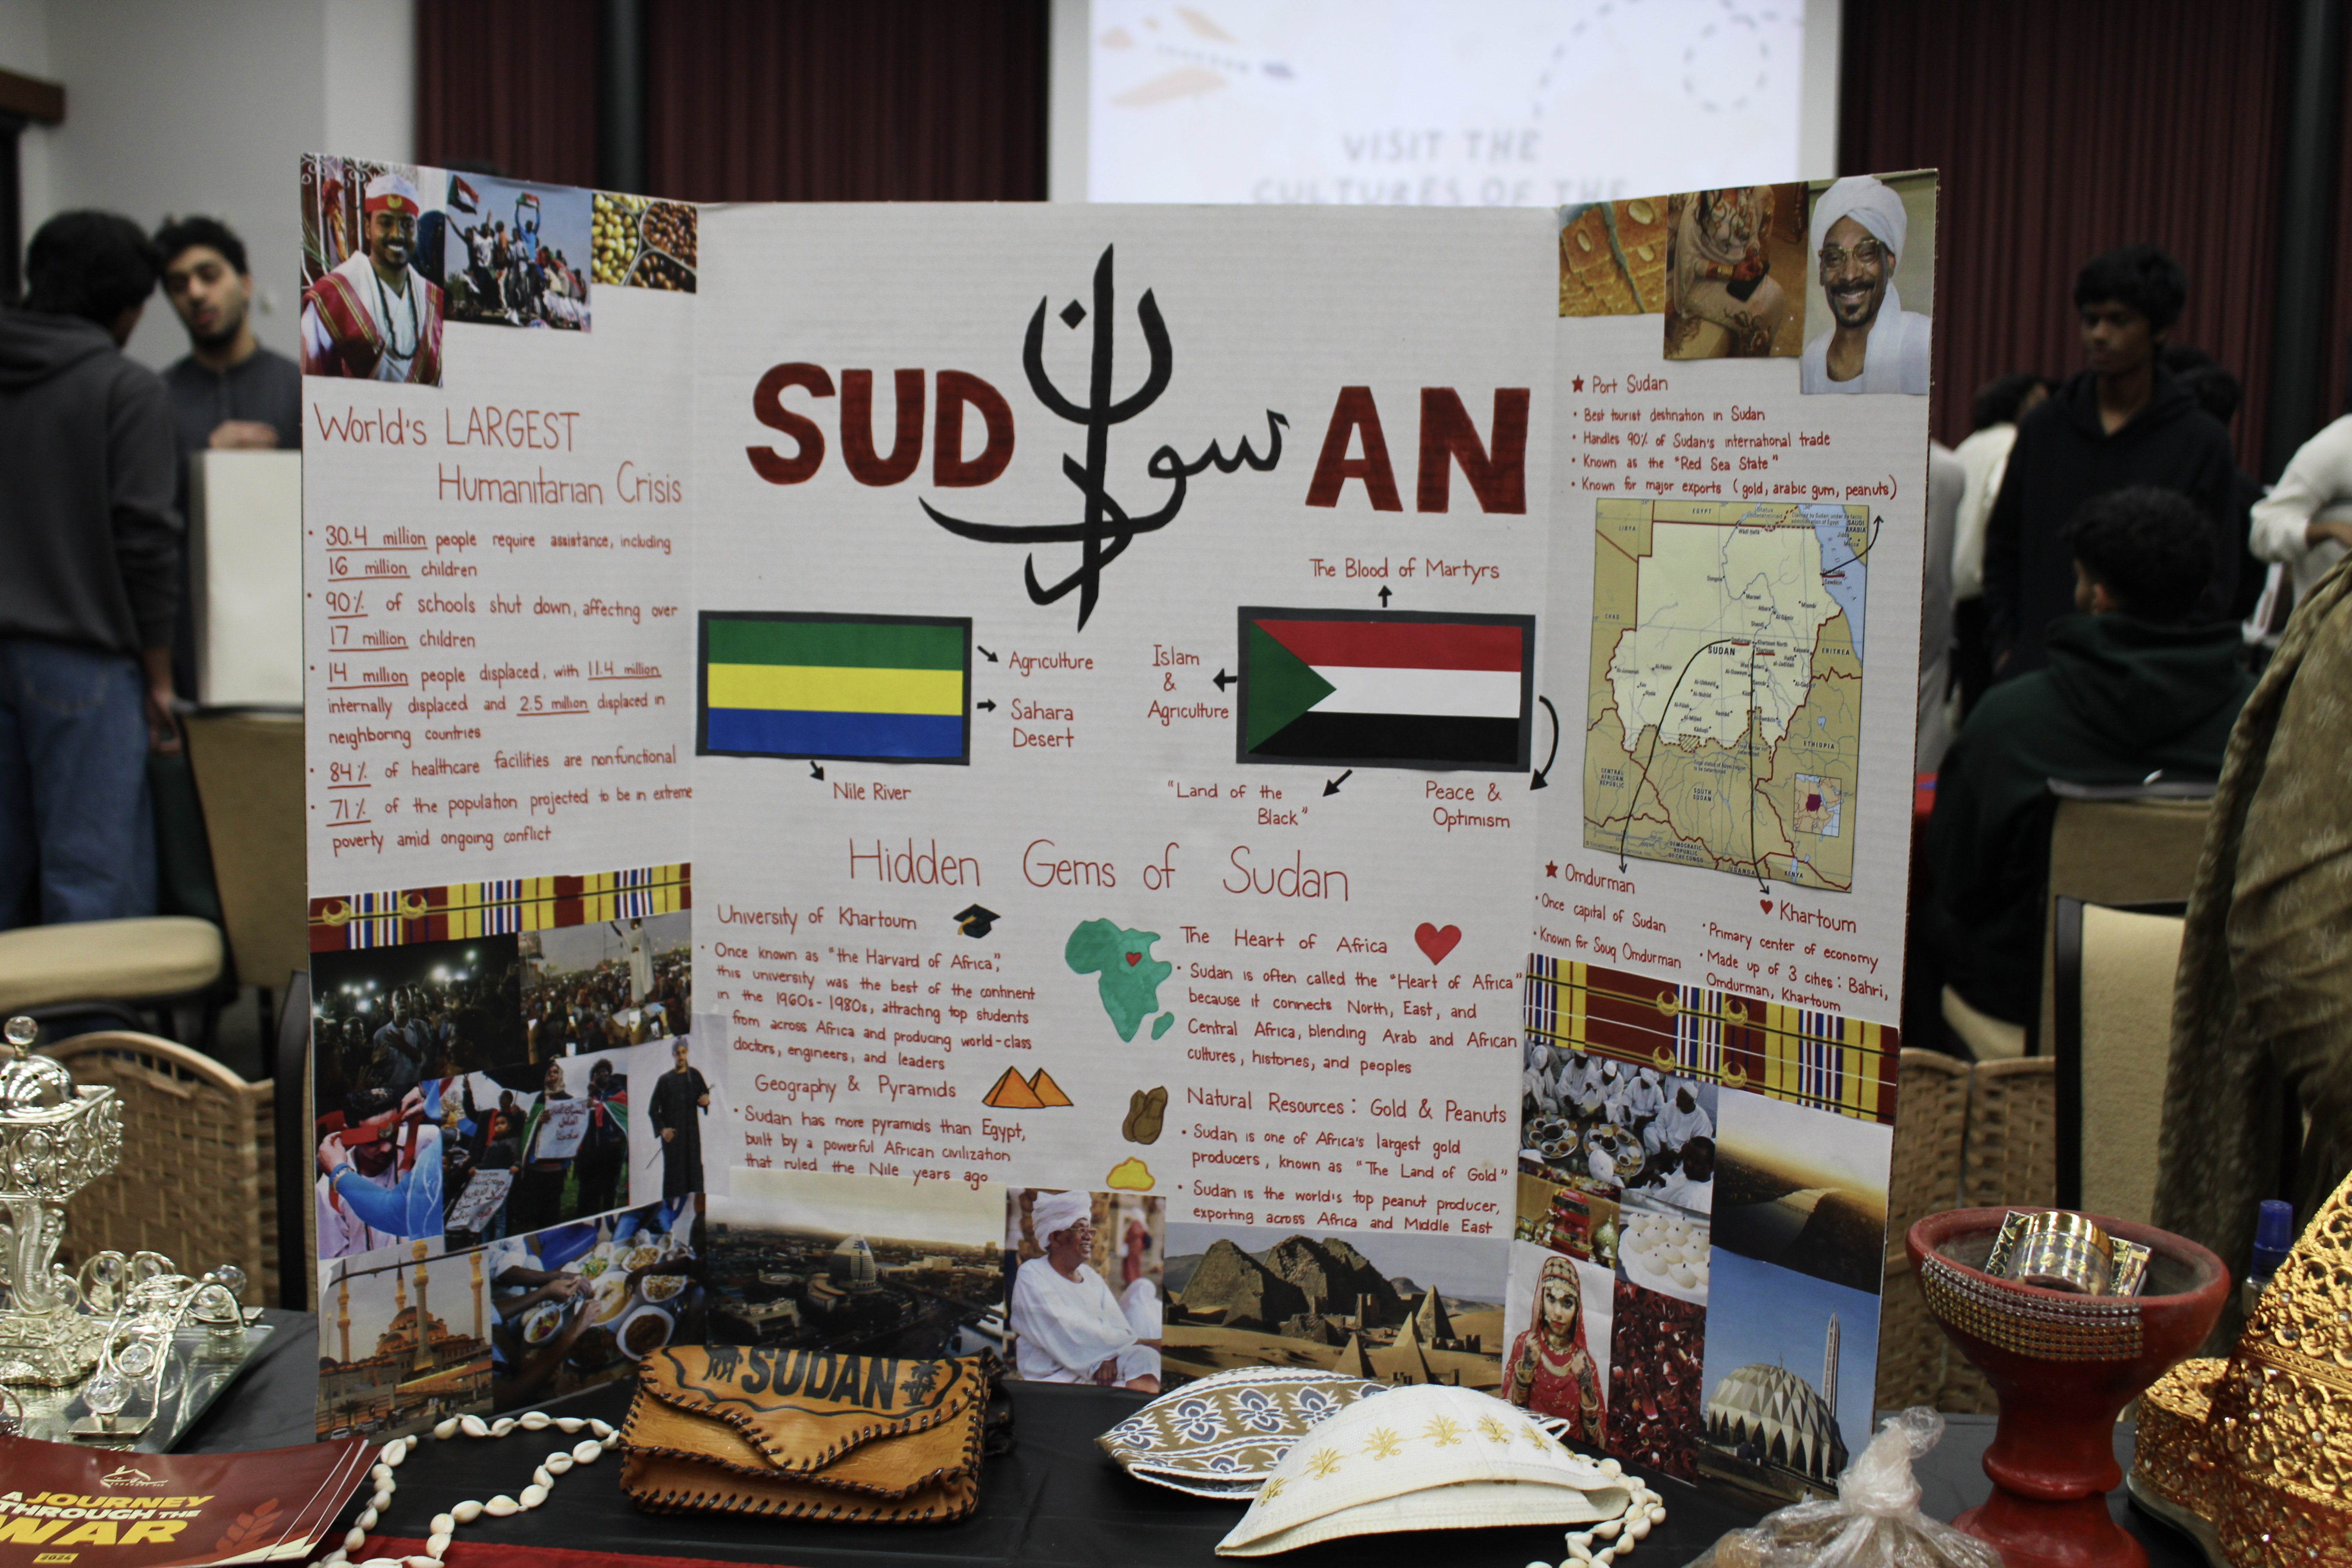 VISIT THE
CULTURES OF THE
World's LARGEST
Humanitarian Crisis
• 30.4 million people require assistance, including
16 million children
• 90% of schools shut down, affecting over
17 million children
• 14 million people displaced, with 11.4 million
internally displaced and 2.5 million displaced in
neighboring countries
• 84% of healthcare facilities are nonfunctional
• 71% of the population projected to be in extreme
poverty amid ongoing conflict
SUD
سودان
AN
Agriculture
Sahara
Desert
Nile River
The Blood of Martyrs
Islam
&
Agriculture
"Land of the
Black"
Peace &
Optimism
Hidden Gems of Sudan
University of Khartoum
• Once known as "the Harvard of Africa",
this university was the best of the continent
in the 1960s-1980s, attracting top students
from across Africa and producing world-class
doctors, engineers, and leaders
Geography & Pyramids
• Sudan has more pyramids than Egypt,
built by a powerful African civilization
that ruled the Nile years ago
The Heart of Africa
• Sudan is often called the "Heart of Africa"
because it connects North, East, and
Central Africa, blending Arab and African
cultures, histories, and peoples
Natural Resources: Gold & Peanuts
• Sudan is one of Africa's largest gold
producers, known as "The Land of Gold"
• Sudan is the world's top peanut producer,
exporting across Africa and Middle East
★ Port Sudan
• Best tourist destination in Sudan
• Handles 90% of Sudan's international trade
• Known as the "Red Sea State"
• Known for major exports (gold, arabic gum, peanuts)
EGYPT
LIBYA
SAUDI
ARABIA
CHAD
SUDAN
ERITREA
ETHIOPIA
CENTRAL
AFRICAN
REPUBLIC
SOUTH
SUDAN
DEMOCRATIC
REPUBLIC
OF THE CONGO
UGANDA
KENYA
★ Omdurman
• Once capital of Sudan
• Known for Souq Omdurman
♥ Khartoum
• Primary center of economy
• Made up of 3 cities: Bahri,
Omdurman, Khartoum
SUDAN
A JOURNEY
THROUGH THE
WAR
2024